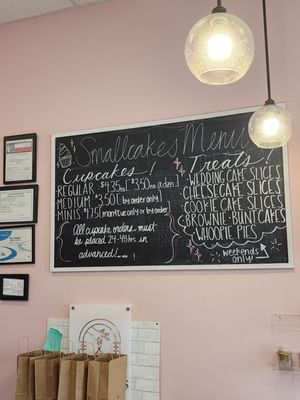 Smallcakes Menu
Cupcakes!
REGULAR $4.35ea [$3.50ea a dzn]
MEDIUM $3.50 (by order only)
MINIS $1.75
All cupcake orders must
be placed 24-48hrs in
advanced!
Treats!
WEDDING CAKE SLICES
CHEESECAKE SLICES
COOKIE CAKE SLICES
BROWNIE·BUNTCAKES
WHOOPIE PIES
weekends
only!